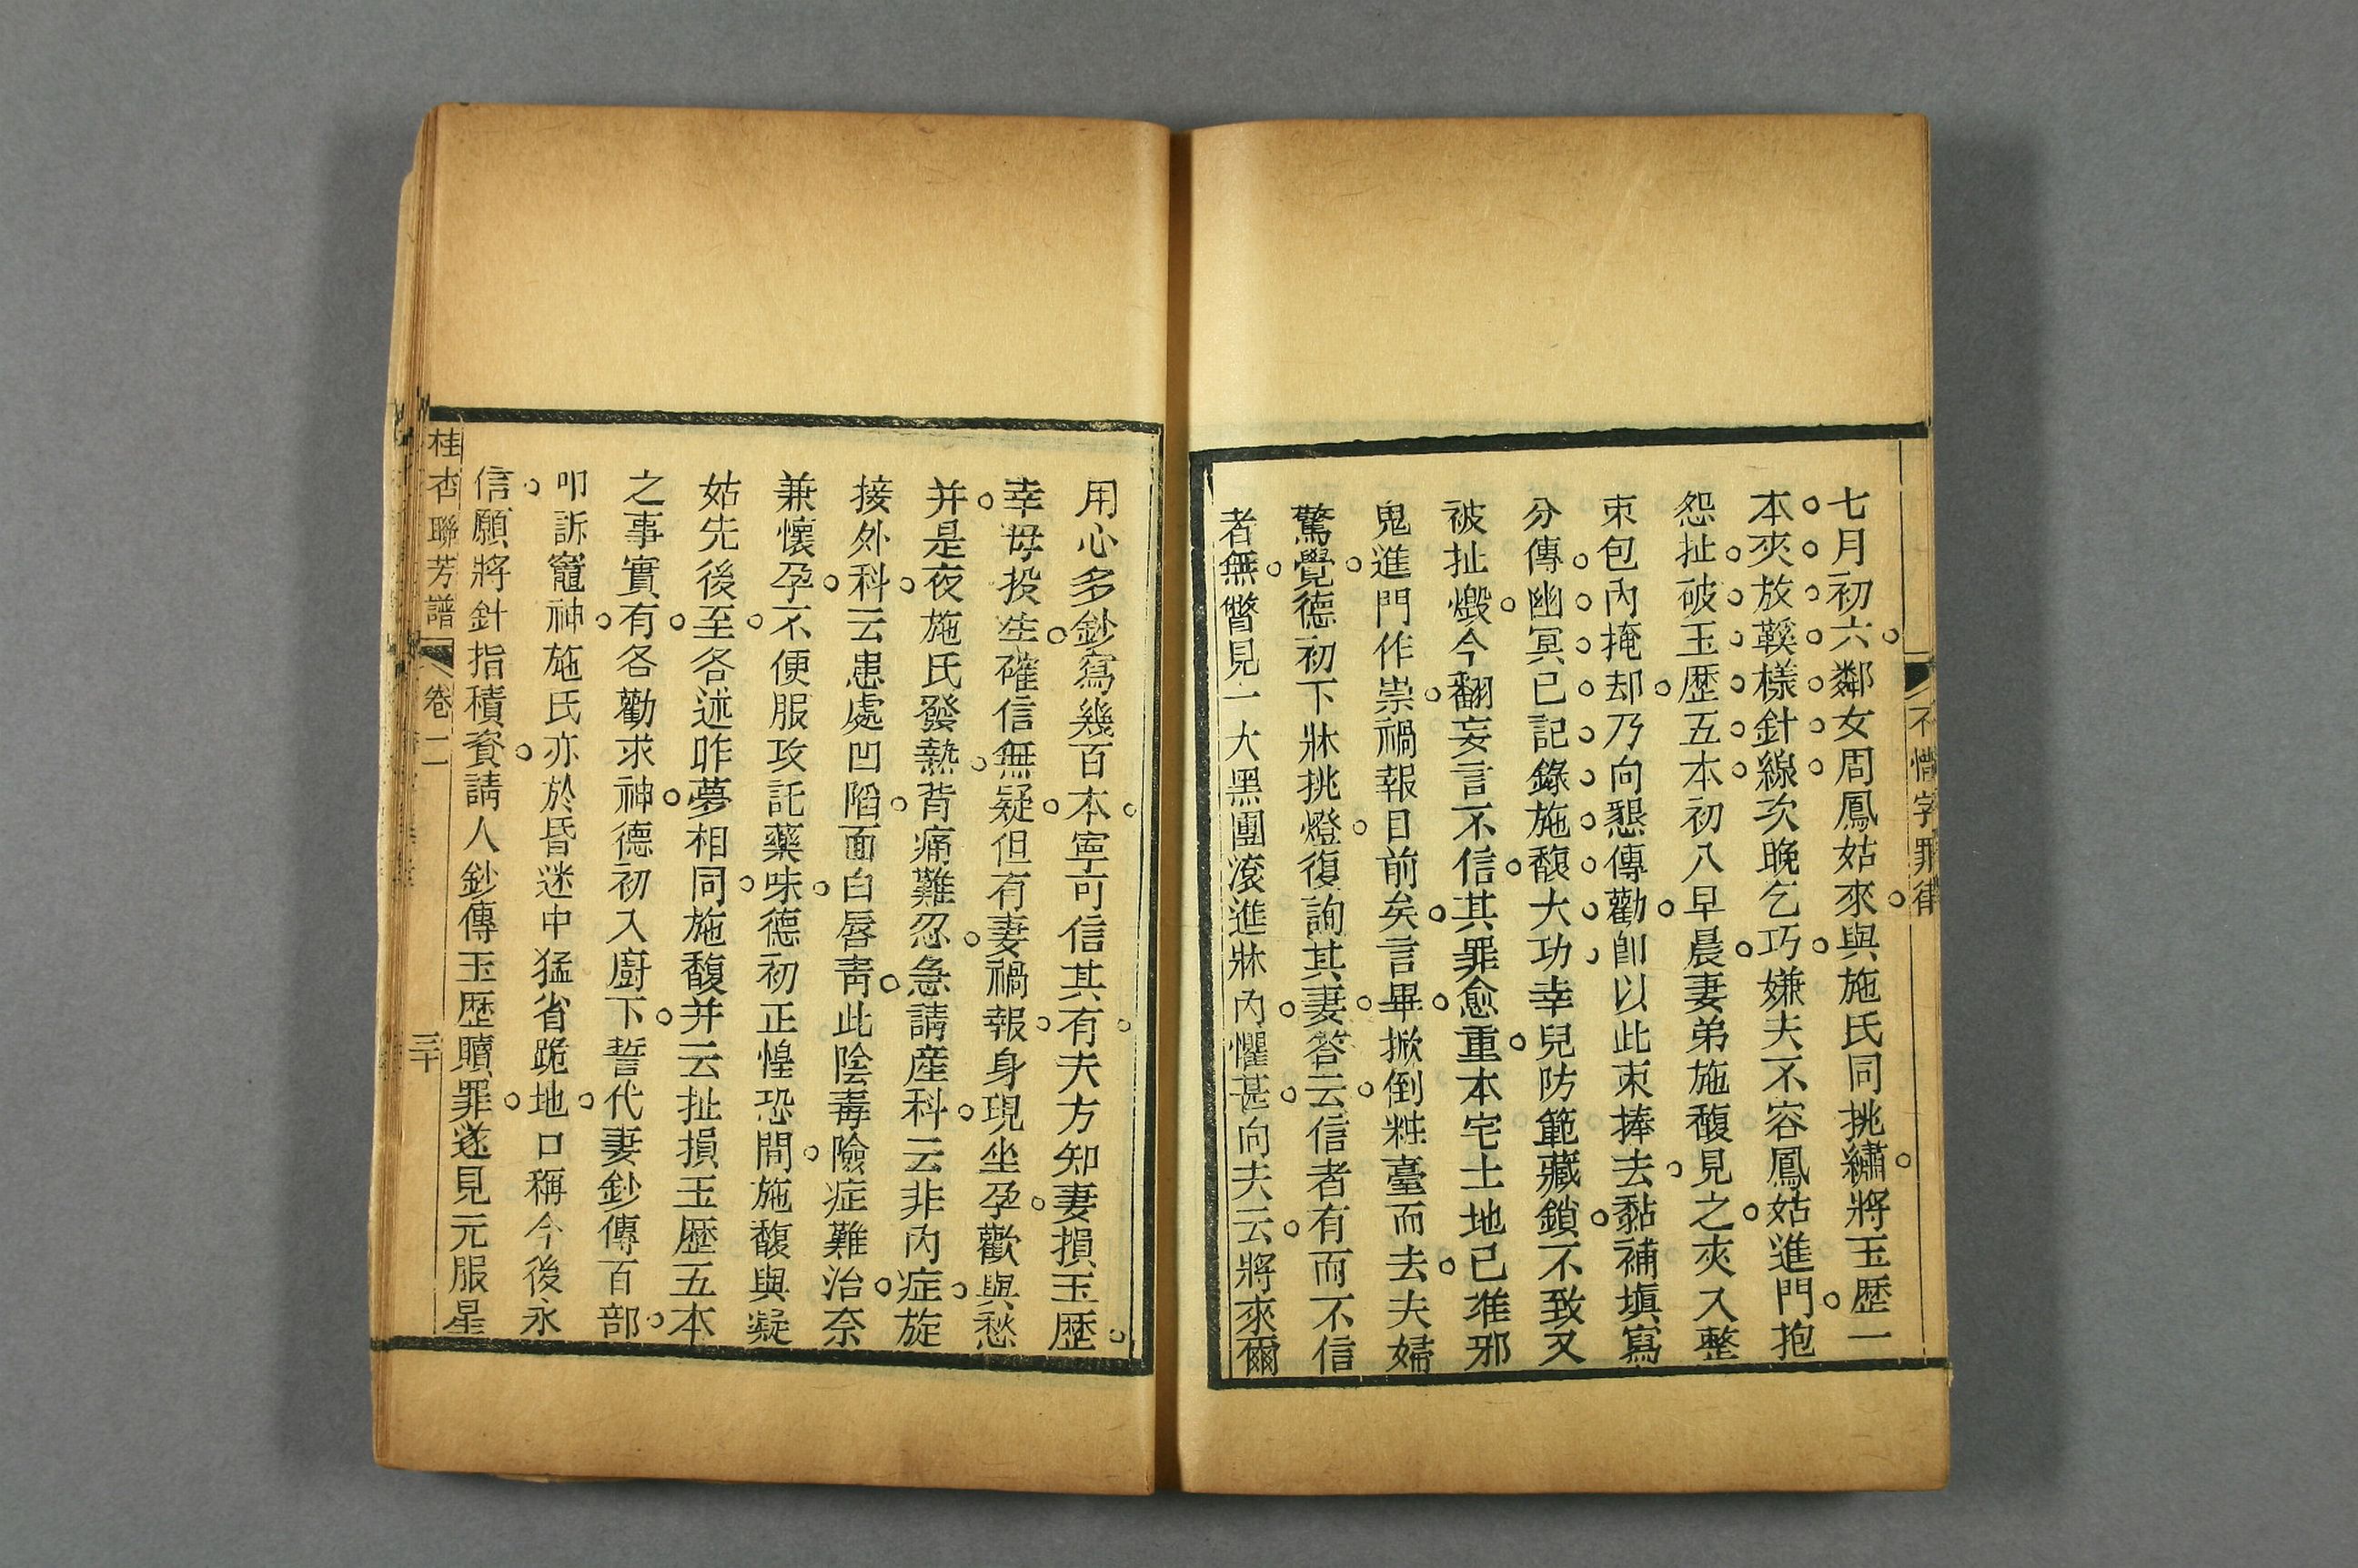 不惜字罪律
七月初六鄰女周鳳姑來與施氏同挑繡將玉歷一
本夾放鞵樣針線次晚乞巧嫌夫不容鳳姑進門抱
怨扯破玉歷五本初八早晨妻弟施馥見之夾入整
束包內掩却乃向懇傳勸卽以此束捧去黏補塡寫
分傳幽冥已記錄施馥大功幸兒防範藏鎖不致又
被扯燬今翻妄言不信其罪愈重本宅土地已准邪
鬼進門作祟禍報目前矣言畢掀倒粧臺而去夫婦
驚覺德初下牀挑燈復詢其妻答云信者有而不信
者無瞥見一大黑團滚進牀內懼甚向夫云將來爾
用心多鈔寫幾百本寧可信其有夫方知妻損玉歷
幸毋投生確信無疑但有妻禍報身現坐孕歡與愁
并是夜施氏發熱背痛難忍急請産科云非內症旋
接外科云患處凹陷面白唇靑此陰毒險症難治奈
兼懷孕不便服攻託藥味德初正惶恐間施馥與凝
姑先後至各述昨夢相同施馥并云扯損玉歷五本
之事實有各勸求神德初入廚下誓代妻鈔傳百部
叩訴竈神施氏亦於昏迷中猛省跪地口稱今後永
信願將針指積資請人鈔傳玉歷贖罪遂見元服星
桂杏聯芳譜 卷二 三十